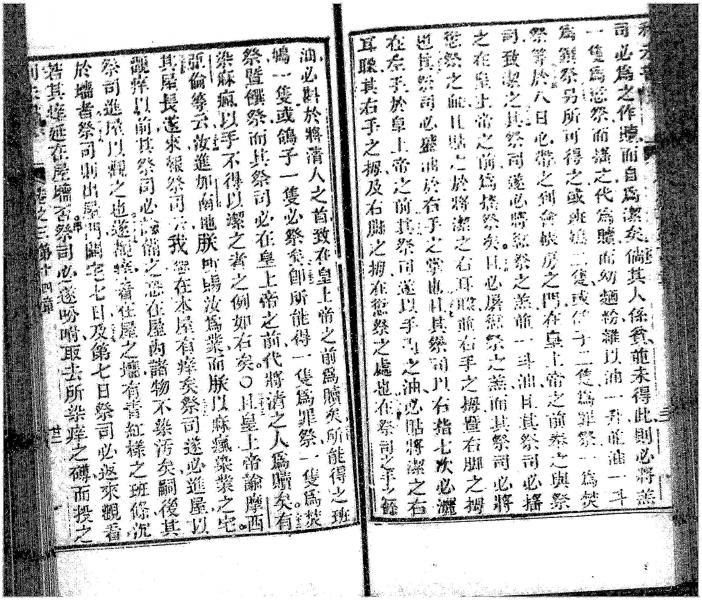 司必爲之作贖而自爲潔矣倘其人係貧能未得此則必將羔
一隻爲愆祭而搖之代爲贖而幼麵粉雜以油一升竝油一斗
爲饌祭另所可得之或班鳩二隻或鴿子二隻爲罪祭一爲焚
祭等於八日必帶之到會帳房之門在皇上帝之前祭之與祭
司致潔之其祭司遂必將愆祭之羔竝一斗油且其祭司必搖
之在皇上帝之前爲搖祭矣且必屠愆祭之羔而其祭司必將
愆祭之血且貼之於將潔之右耳聸竝右手之拇暨右脚之拇
也其祭司必盛油於右手之掌也且其祭司以右指七次必灑
在右手於皇上帝之前其祭司遂以手內之油必貼將潔之右
耳聸其右手之拇及右脚之拇在愆祭之處也在祭司之手之餘
油必斟於將潔人之首致在皇上帝之前爲贖矣所能得之班
鳩一隻或鴿子一隻必祭矣卽所能得一隻爲罪祭一隻爲焚
祭暨饌祭而其祭司必在皇上帝之前代將潔之人爲贖矣有
染麻瘋以手不得以潔之者之例如右矣○且皇上帝諭摩西
亞倫等云汝進如南地朕所賜汝爲業而朕以麻瘋染業之宅
其屋長遂來報祭司云我想在本屋有痒矣祭司遂必進屋以
觀痒以前其祭司必令備之恐在屋內諸物不染汚矣嗣後其
祭司進屋以觀之也遂觀痒看在屋之墻有青紅樣之班條沉
於墻者祭司則出屋門關宅七日及第七日祭司必返來觀看
若其痒延在屋墻否祭司必遂吩咐取去所染痒之磚而投之
卷之三第十四章 廿二